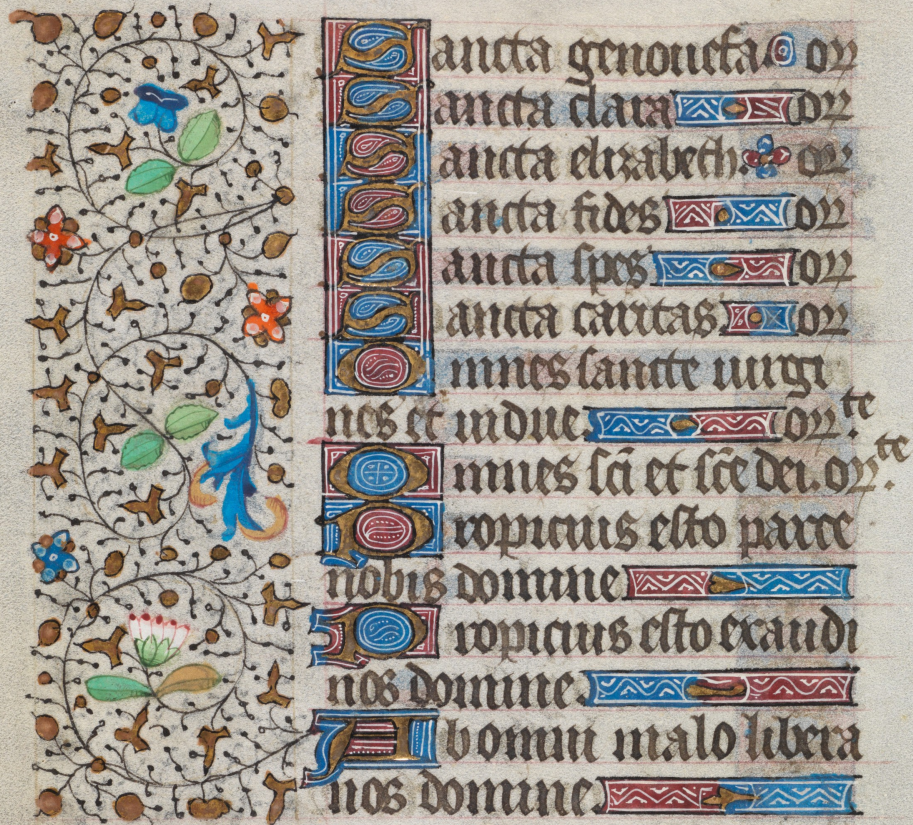 Sancta genouefa or
Sancta clara or
Sancta elizabeth. or
Sancta fides or
Sancta spes or
Sancta caritas or
Omnes sancte uirgi
nes et uidue or te.
Omnes sci et sce dei. or te.
Propicius esto parce
nobis domine
Propicius esto exaudi
nos domine
Ab omni malo libera
nos domine